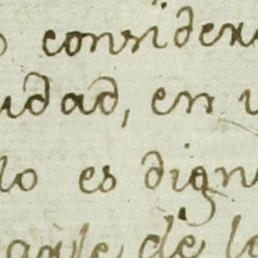 consider
idad, en
lo es dign
de lo